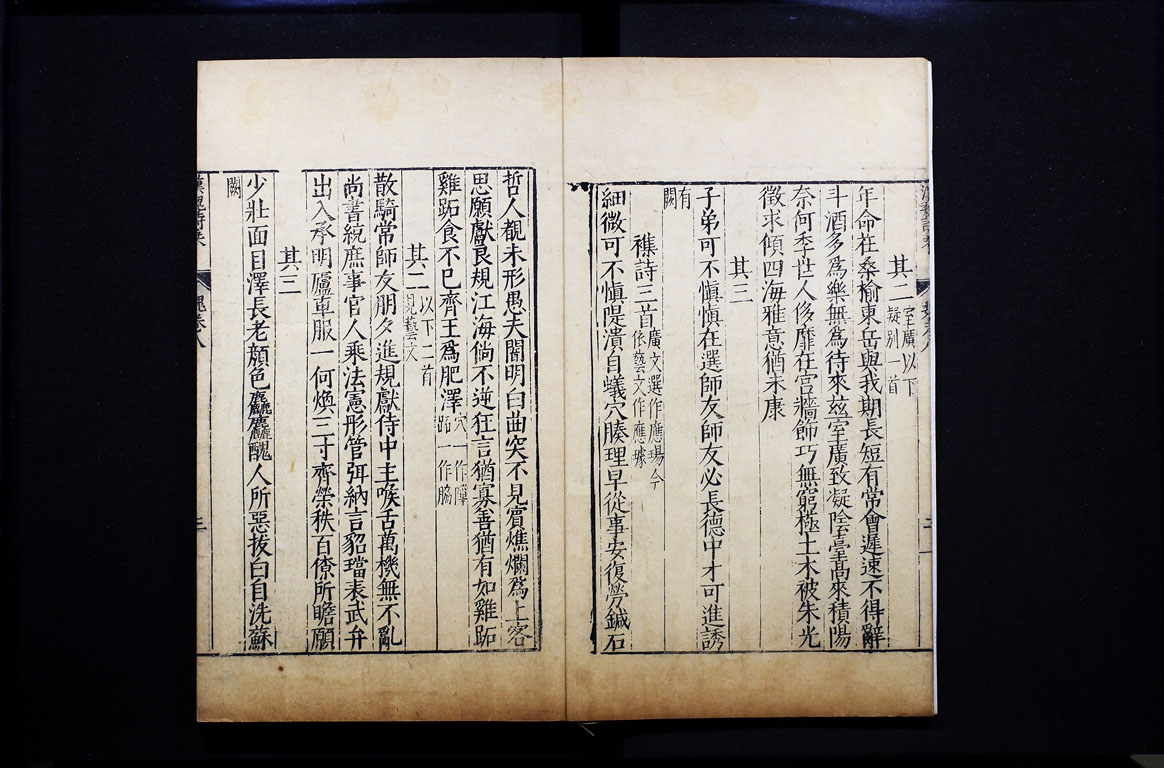 其二室廣以下
疑別一首
年命在桑榆東岳與我期長短有常會遲速不得辭
斗酒多爲樂無爲待來玆室廣致凝陰臺高來積陽
奈何季世人侈靡在宫牆飾巧無窮極土木被朱光
徵求傾四海雅意猶未康
其三
子弟可不慎慎在選師友師友必長德中才可進誘
有闕
襍詩三首廣文選作應瑒今
依藝文作應璩
細微可不愼隄潰自蟻穴腠理早從事安復勞鍼石
哲人覩未形愚夫闇明白曲突不見賓燋爛爲上客
思願獻良規江海倘不逆狂言猶寡善猶有如雞跖
雞跖食不已齊王爲肥澤穴一作墇
跖一作脇
其二以下二首
見藝文
散騎常師友朋夕進規獻侍中主喉舌萬機無不亂
尚書統庶事官人乘法憲彤管弭納言貂璫表武弁
出入承明廬車服一何煥三寸齊榮秩百僚所瞻願
其三
少壯面目澤長老顏色麤麤醜人所惡拔白自洗蘇
闕
漢魏詩乗
魏卷八
三